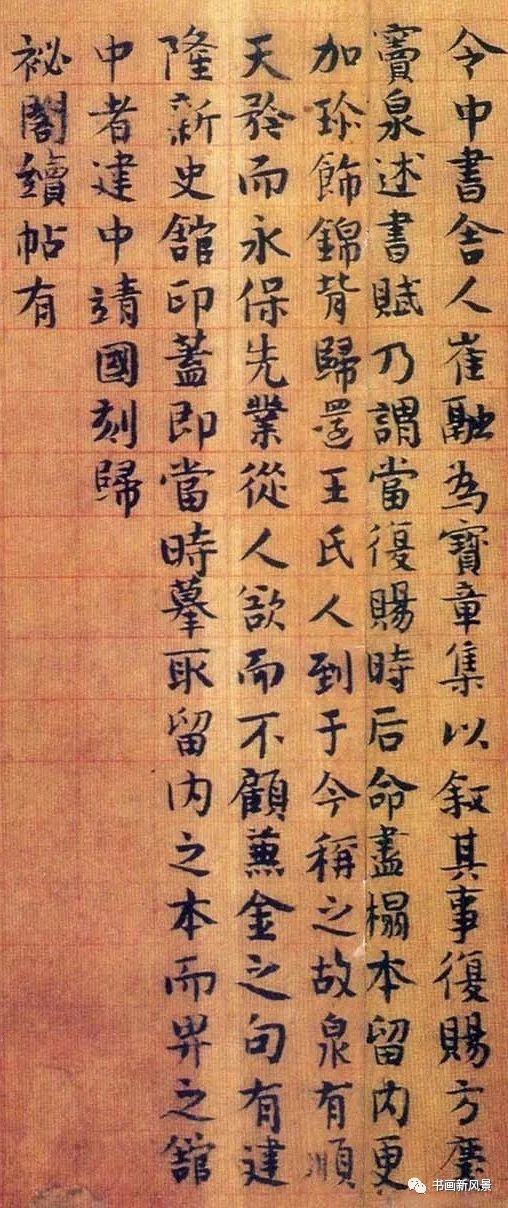 令中書舎人崔融為寶章集以叙其事復賜方慶
竇泉述書賦乃謂當復賜時后命盡榻本留内更
加珎飾錦背歸還王氏人到于今稱之故泉有順
天矜而永保先業從人欲而不顧蒹金之句有建
隆新史舘印蓋即當時摹取留内之本而畀之舘
中者建中靖國刻歸
祕閣續帖有
书画新风景